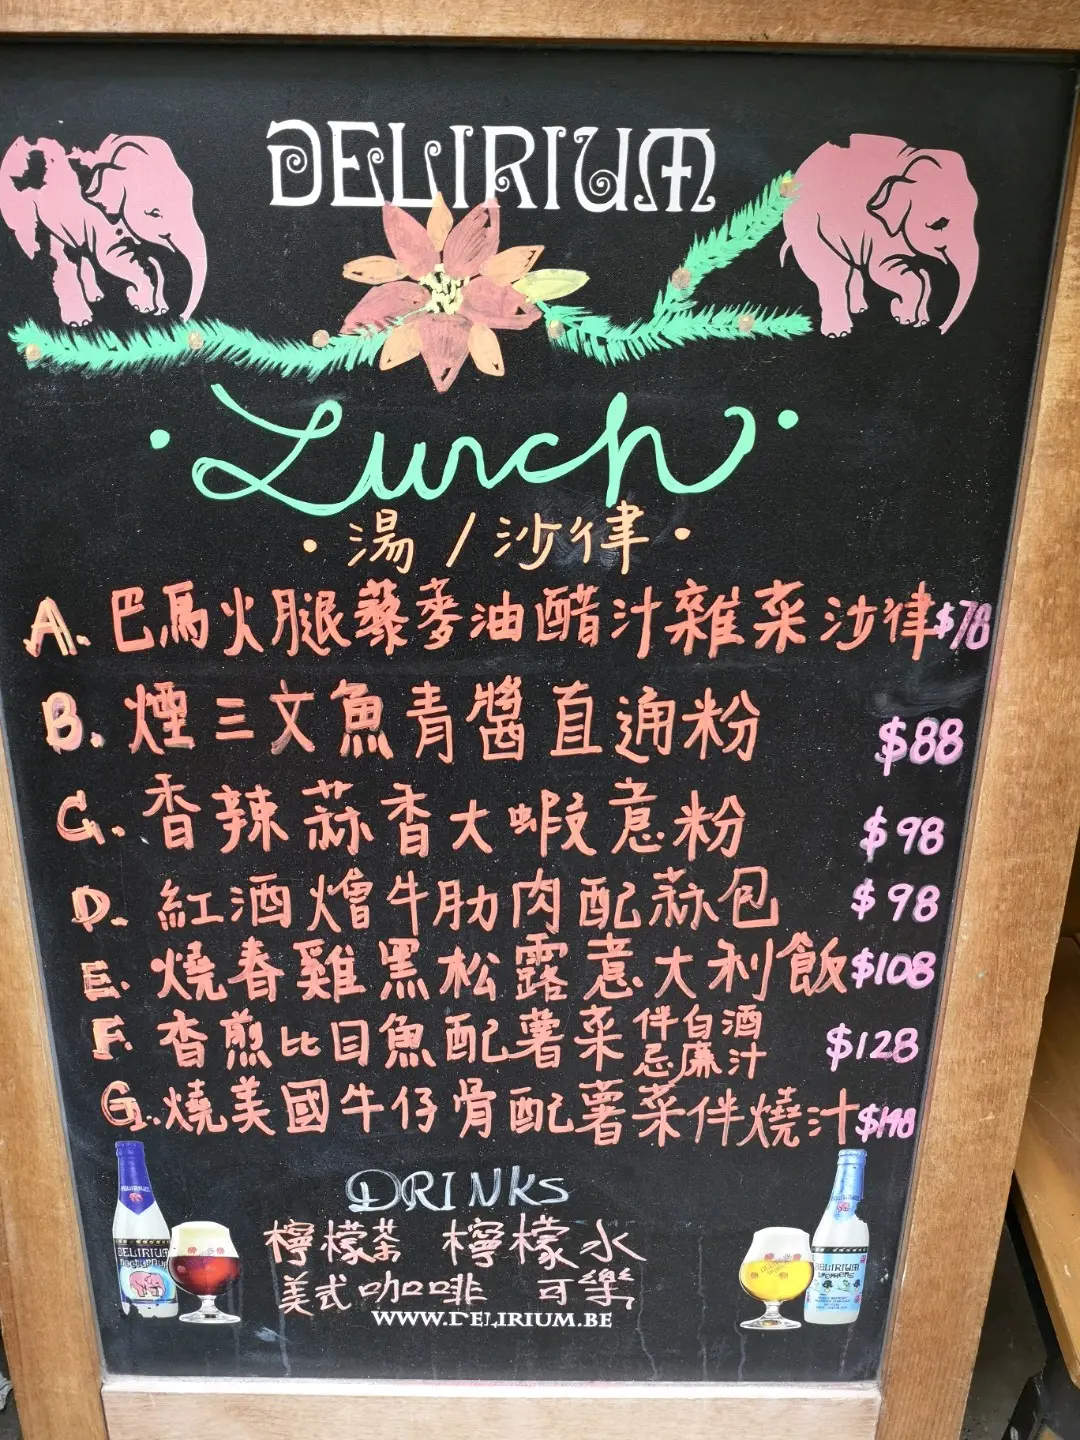 DELIRIUM
Lunch
· 湯 / 沙律 ·
A. 巴馬火腿藜麥油醋汁雜菜沙律 $78
B. 煙三文魚青醬直通粉 $88
C. 香辣蒜香大蝦意粉 $98
D. 紅酒燴牛肋肉配蒜包 $98
E. 燒春雞黑松露意大利飯 $108
F. 香煎比目魚配薯菜伴白酒忌廉汁 $128
G. 燒美國牛仔骨配薯菜伴燒汁 $198
DRINKS
檸檬茶 檸檬水
美式咖啡 可樂
WWW.DELIRIUM.BE
DELIRIUM
DELIRIUM